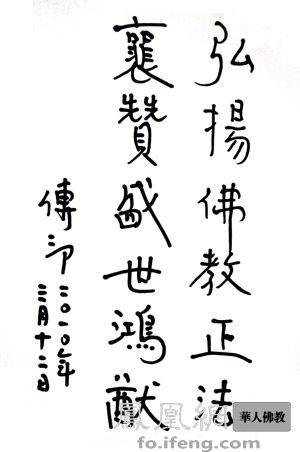 弘揚佛教正法
襄贊盛世鴻猷
傳印 二〇一〇年
三月十二日
華人佛教
鳳凰網
fo.ifeng.com